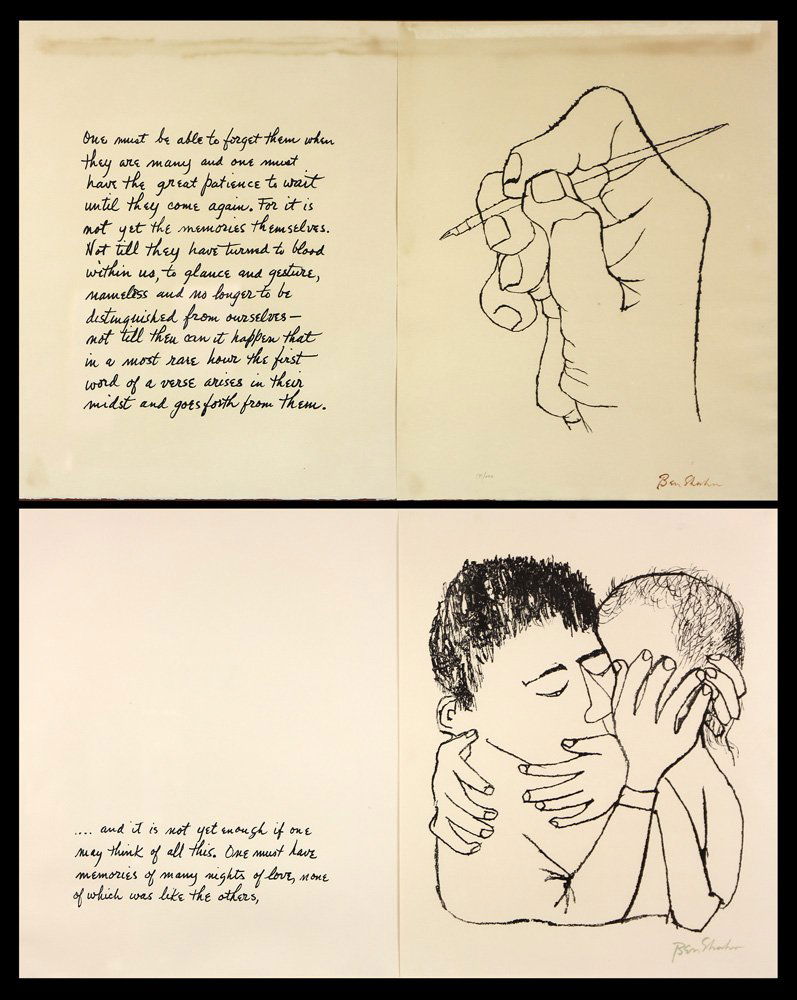 One must be able to forget them when
they are many and one must
have the great patience to wait
until they come again. For it is
not yet the memories themselves.
Not till they have turned to blood
within us, to glance and gesture,
nameless and no longer to be
distinguished from ourselves—
not till then can it happen that
in a most rare hour the first
word of a verse arises in their
midst and goes forth from them.
Ben Shahn
.... and it is not yet enough if one
may think of all this. One must have
memories of many nights of love, none
of which was like the others,
Ben Shahn